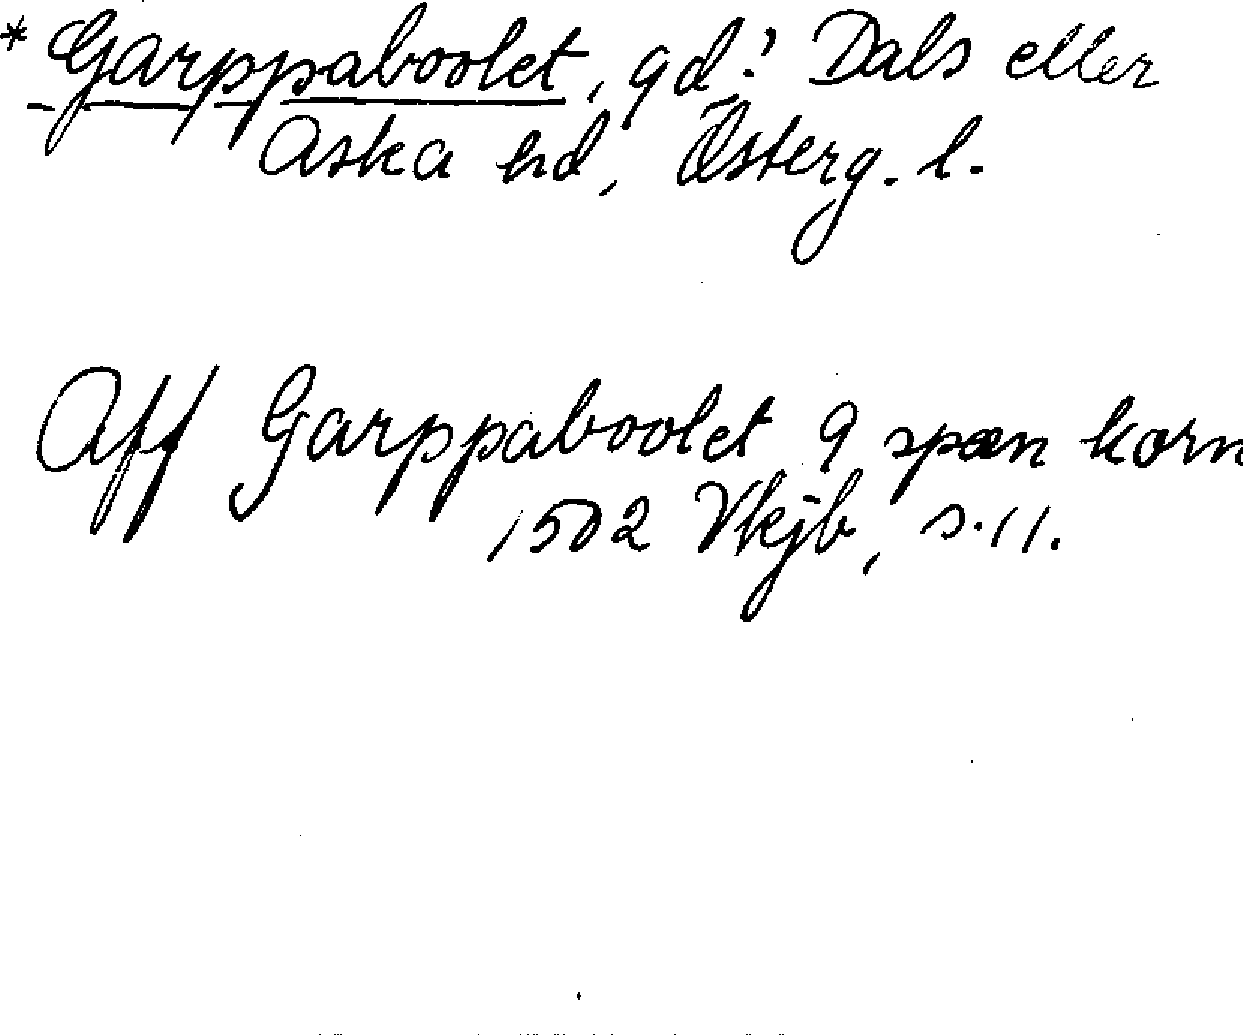 * Garppaboolet, gd? Dals eller
Aska hd, Österg. l.
Aff Garppaboolet 9 spæn korn
1502 Vkjb, s. 11.